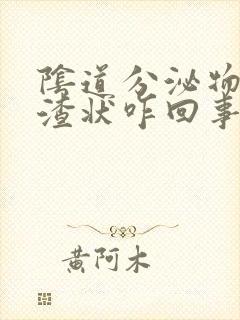 陰道分泌物
渣状咋回事
黄阿木